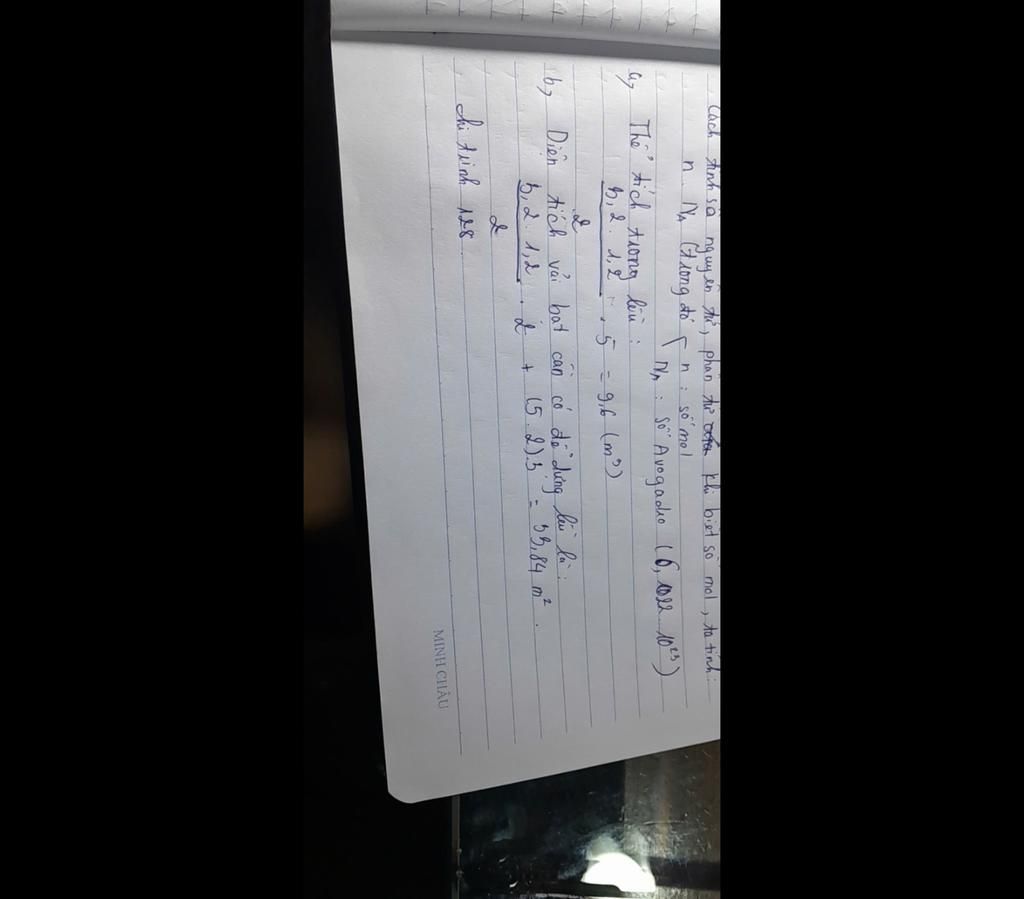 Cách tính số nguyên tử, phân tử khi biết số mol, ta tính:
n . NA (trong đó { n : số mol
NA : số Avogadro (6,1022 . 10²³)
a, Thể tích trong lều :
3,2 . 1,2 / 2 . 5 = 9,6 (m³)
b, Diện tích vải bạt cần có để dựng lều là :
3,2 . 1,2 / 2 . 2 + (5 . 2).3 = 33,84 m².
chi tinh 128
MINH CHÂU